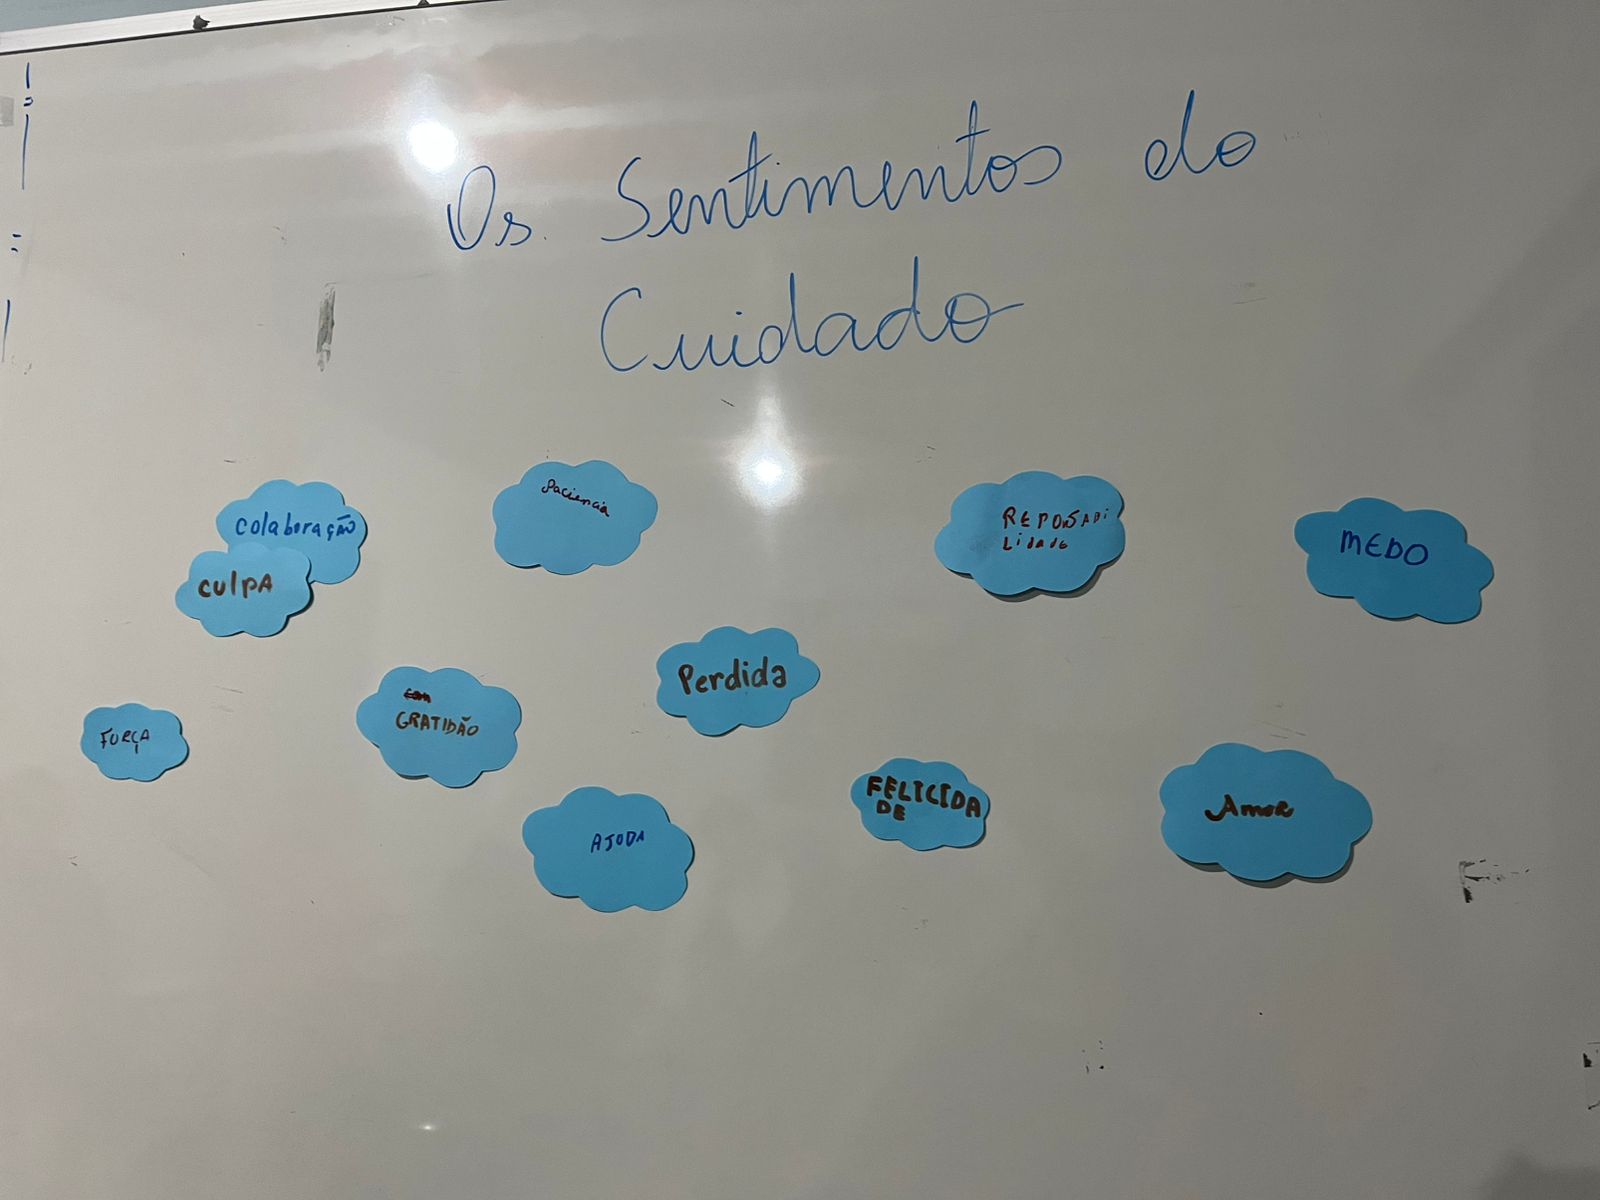 Os Sentimentos do
Cuidado
colaboração
culpa
Paciencia
REPONSABI
LidAdE
MEDO
Perdida
FORÇA
GRATIDÃO
AJUDA
FELICIDA
DE
Amor